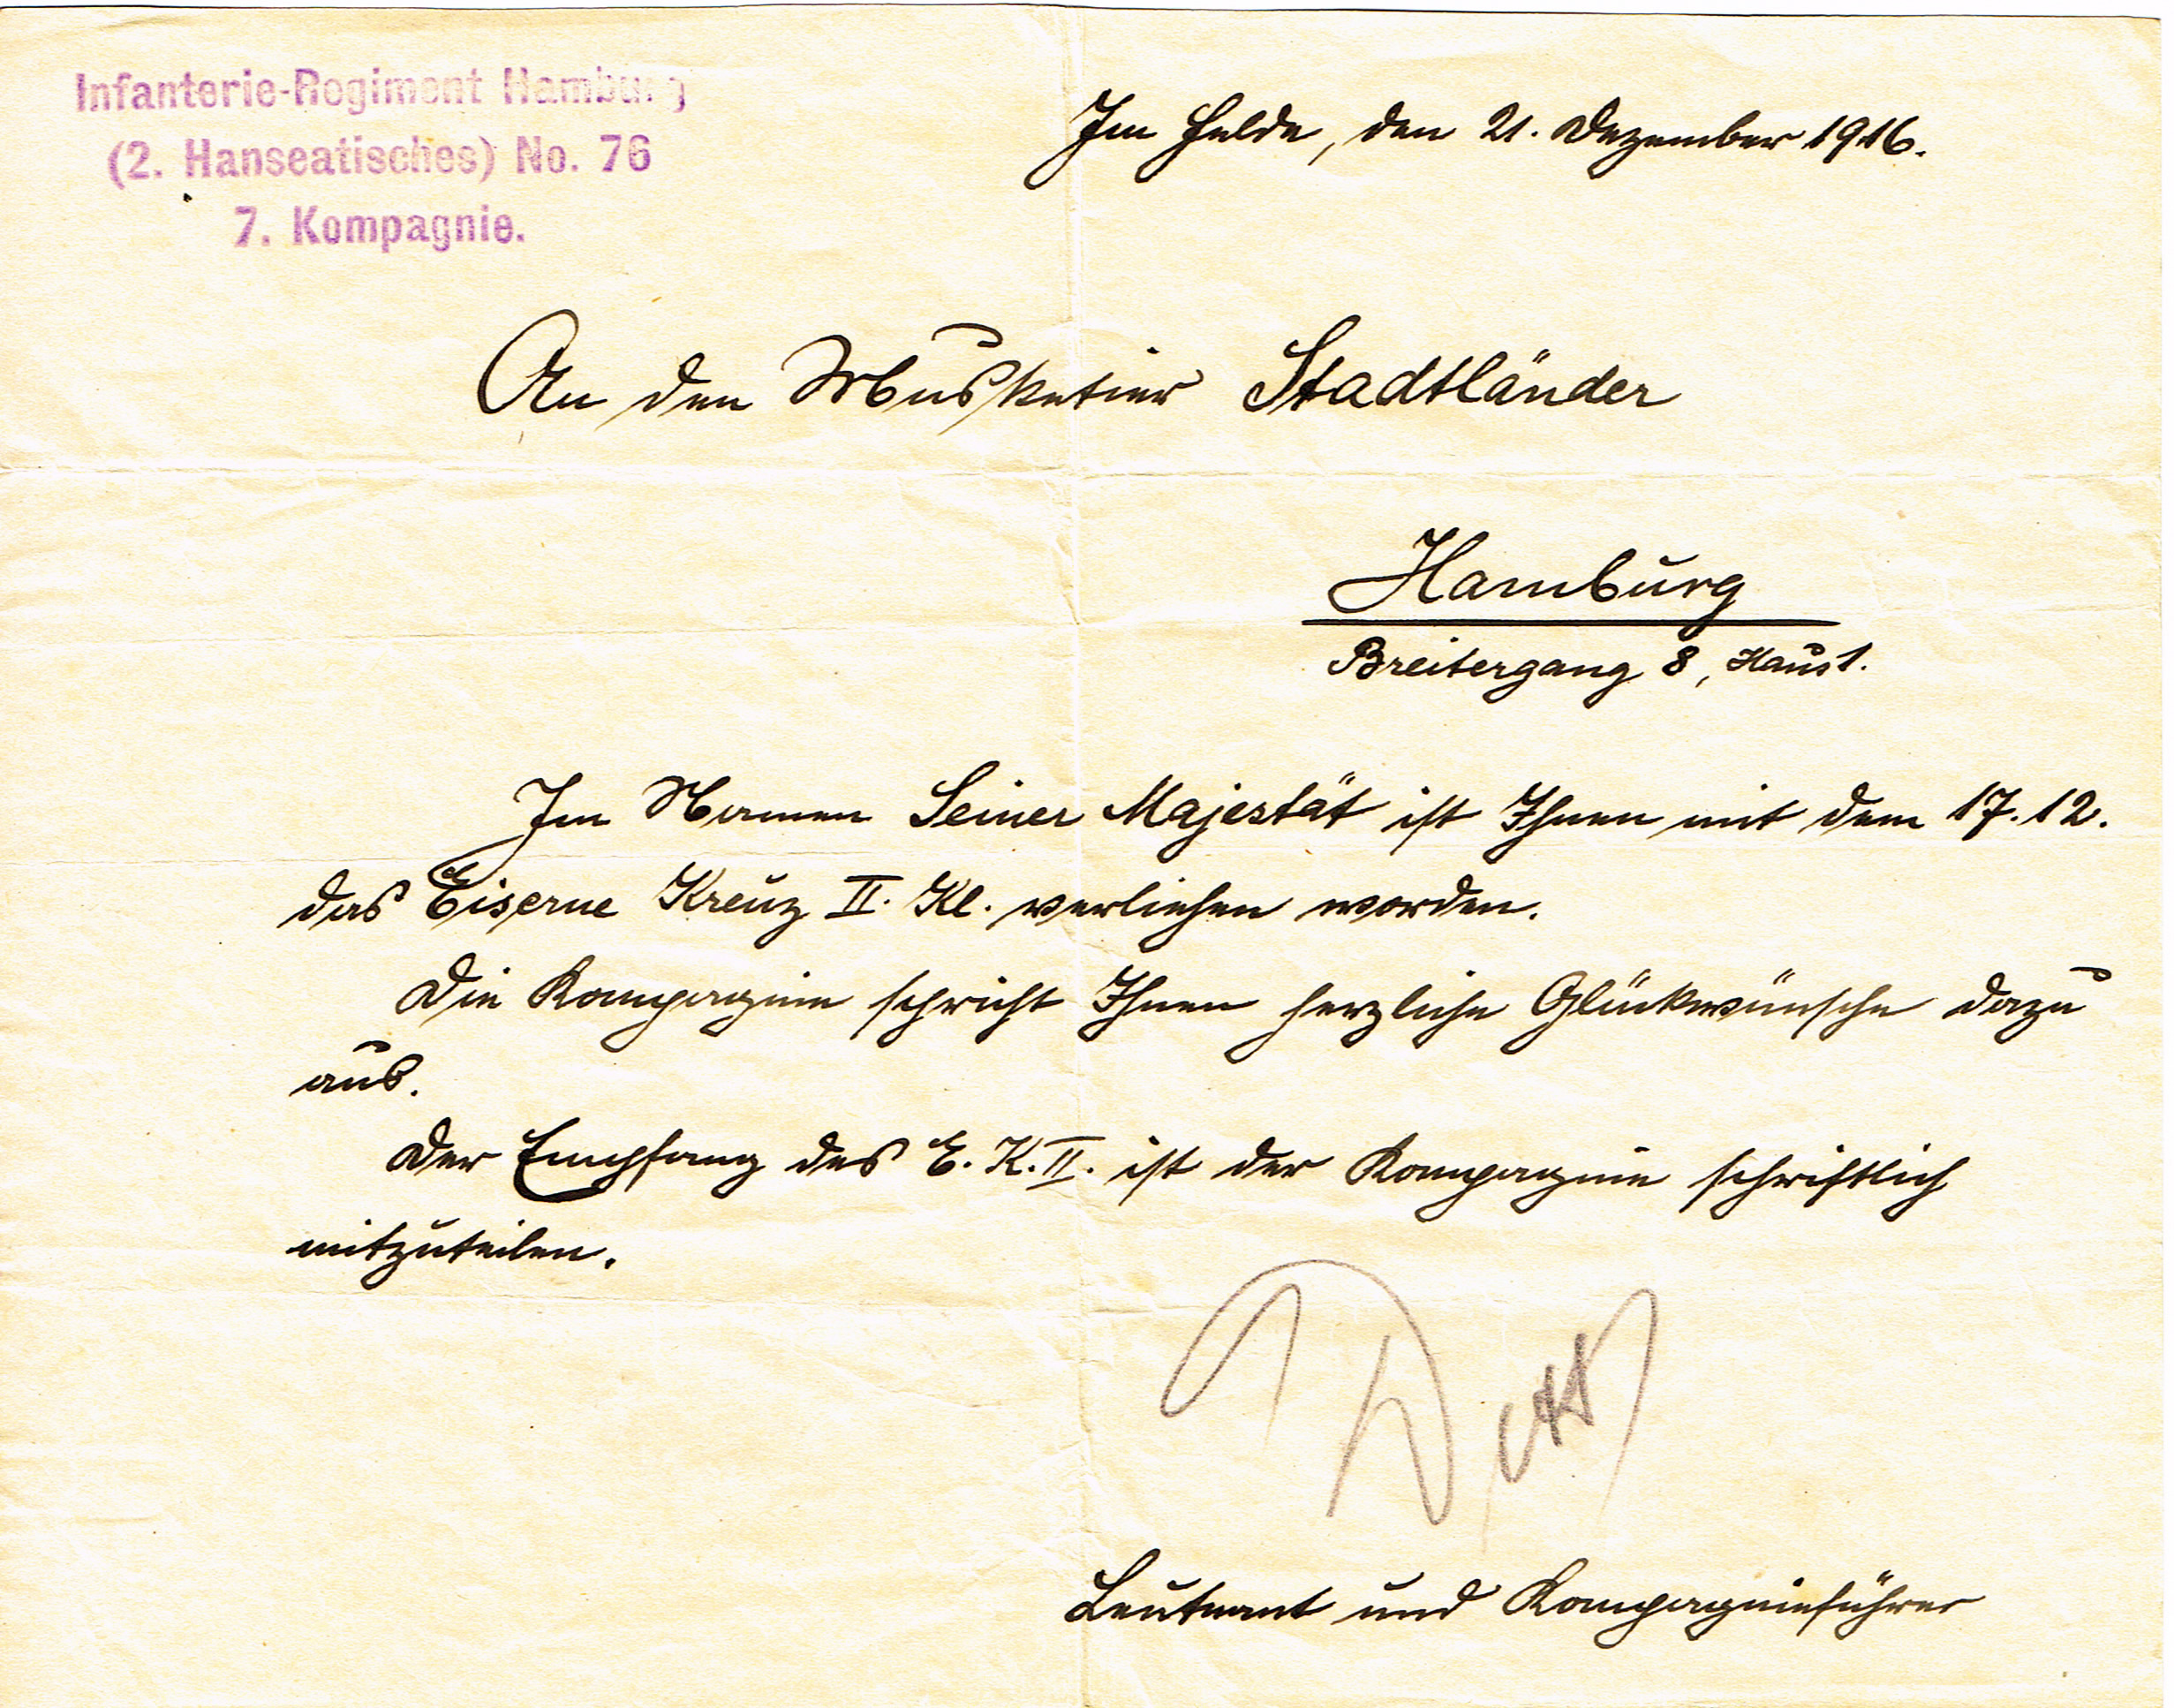 Infanterie-Regiment Hamburg
(2. Hanseatisches) No. 76
7. Kompagnie.
Im Felde, den 21. Dezember 1916.
An den Musketier Stadtländer
Hamburg
Breitergang 8, Haus 1.
Im Namen Seiner Majestät ist Ihnen mit dem 17.12.
das Eiserne Kreuz II. Kl. verliehen worden.
Die Kompagnie spricht Ihnen herzliche Glückwünsche dazu
aus.
Der Empfang des E. K. II. ist der Kompagnie schriftlich
mitzuteilen.
Leutnant und Kompagnieführer